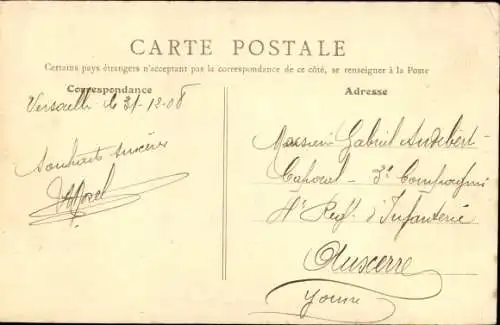 CARTE POSTALE
Certains pays étrangers n'acceptant pas la correspondance de ce côté, se renseigner à la Poste
Correspondance
Adresse
Versailles le 31-12-08
Souhaits sincères
Monsieur Gabriel Audebert
Caporal - 3e Compagnie
4e Regt d'Infanterie
Auxerre
Yonne